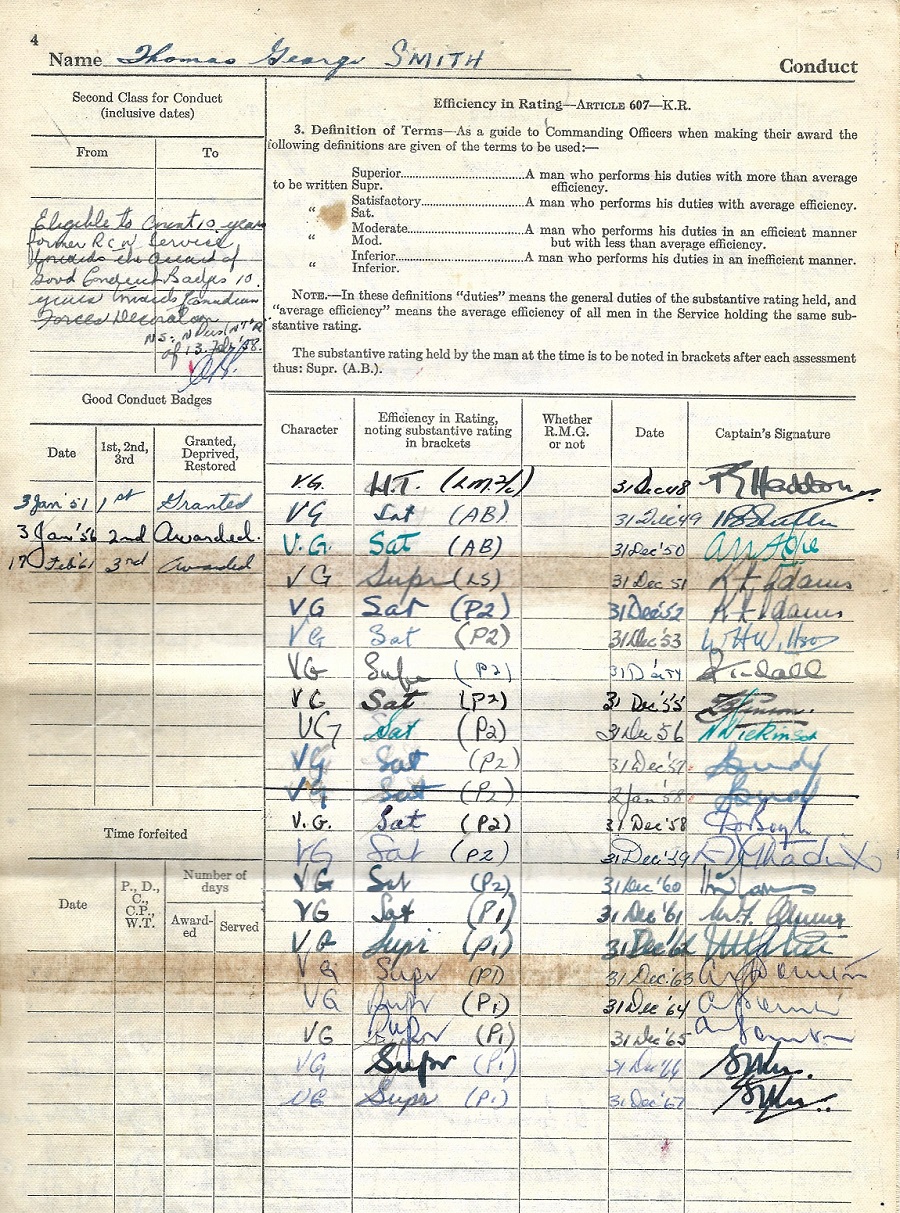 4
Name Thomas George SMITH
Conduct
Second Class for Conduct
(inclusive dates)
From To
Eligible to count 10 years
former R C N Service
towards the award of
Good Conduct Badges 10
years towards Canadian
Forces Decoration
of 13 Feb '58.
Good Conduct Badges
Date 1st, 2nd, 3rd Granted, Deprived, Restored
3 Jan '51 1st Granted
3 Jan '56 2nd Awarded.
17 Feb '61 3rd Awarded
Time forfeited
Date P., D., C., C.P., W.T. Number of days
Award-ed Served
Efficiency in Rating—ARTICLE 607—K.R.
3. Definition of Terms—As a guide to Commanding Officers when making their award the
following definitions are given of the terms to be used:—
Superior.......A man who performs his duties with more than average
to be written Supr. efficiency.
Satisfactory.......A man who performs his duties with average efficiency.
" Sat.
Moderate.......A man who performs his duties in an efficient manner
" Mod. but with less than average efficiency.
Inferior.......A man who performs his duties in an inefficient manner.
" Inferior.
NOTE.—In these definitions "duties" means the general duties of the substantive rating held, and
"average efficiency" means the average efficiency of all men in the Service holding the same sub-
stantive rating.
The substantive rating held by the man at the time is to be noted in brackets after each assessment
thus: Supr. (A.B.).
Character Efficiency in Rating, noting substantive rating in brackets Whether R.M.G. or not Date Captain's Signature
VG. 31 Dec 48
VG Sat (AB) 31 Dec 49
V.G. Sat (AB) 31 Dec '50
VG Supr (LS) 31 Dec 51 Adams
VG Sat (P2) 31 Dec '52 Adams
VG Sat (P2) 31 Dec '53
VG (P2)
VG Sat (P2) 31 Dec '55
VG Sat (P2) 31 Dec 56 Dickinson
VG Sat (P2) 31 Dec '57
VG Sat (P2) 2 Jan '58
V.G. Sat (P2) 31 Dec '58
VG Sat (P2) 31 Dec '59
VG Sat (P2) 31 Dec '60
VG Sat (P1) 31 Dec '61
VG Supr (P1) 31 Dec '62
VG Supr (P1) 31 Dec '63
VG Supr (P1) 31 Dec '64
VG (P1) 31 Dec '65
VG Supr (P1) 31 Dec '66
VG Supr (P1) 31 Dec '67